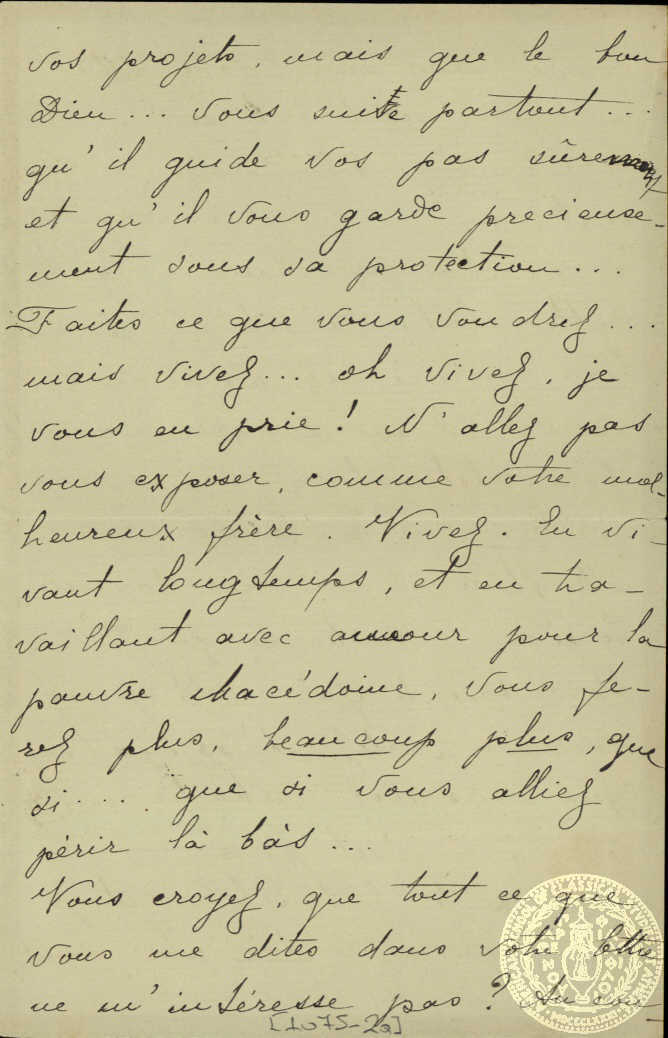 vos projets, mais que le bon
Dieu... vous suite partout...
qu'il guide vos pas sûrement
et qu'il vous garde precieuse-
ment sous sa protection...
Faites ce que vous voudrez...
mais vivez... oh vivez, je
vous en prie! N'allez pas
vous exposer, comme votre mal-
heureux frère. Vivez. En vi-
vant longtemps, et en tra-
vaillant avec amour pour la
pauvre Macédoine, vous fe-
rez plus, beaucoup plus, que
si.... que si vous alliez
périr là bàs...
Vous croyez, que tout ce que
vous me dites dans votre lettre
ne m'intéresse pas? Au con-
[1075-2a]